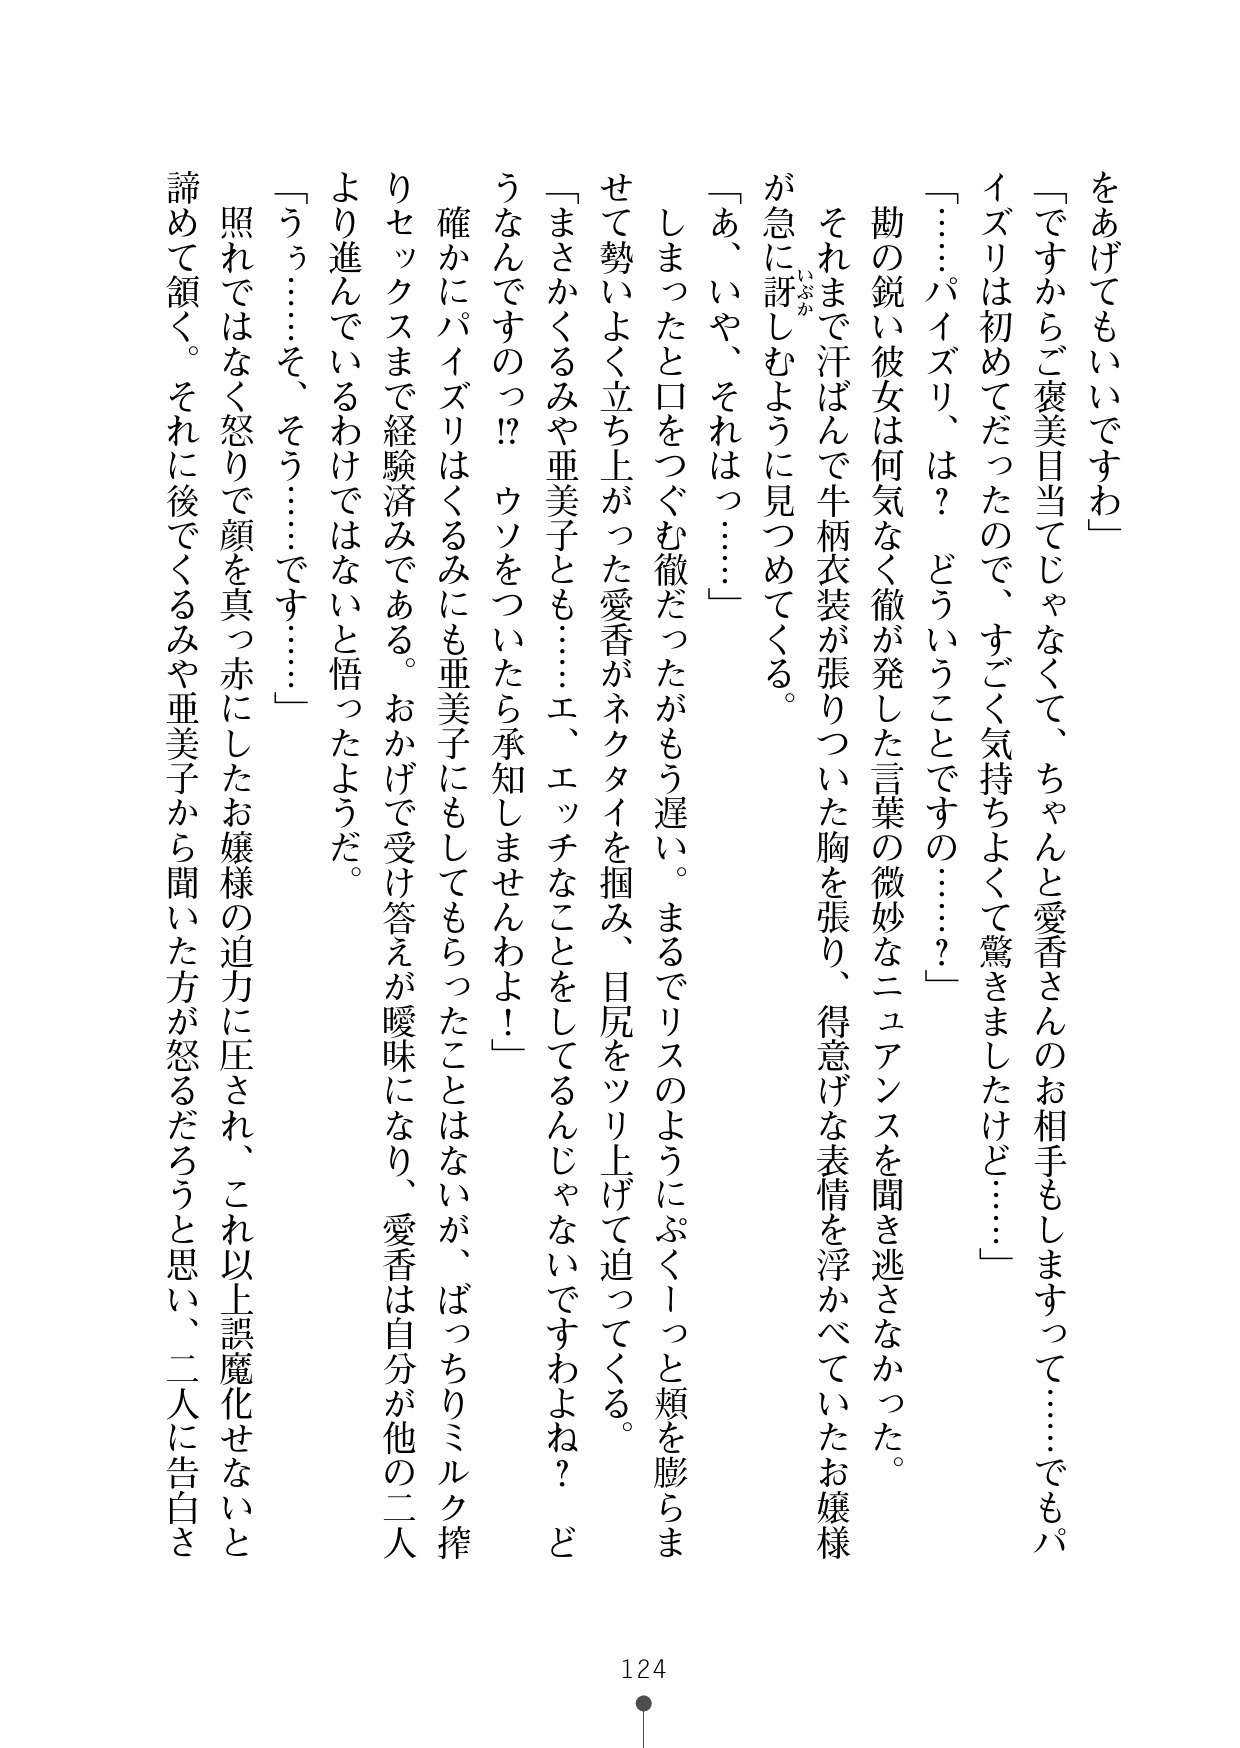 をあげてもいいですわ」
「ですからご褒美目当てじゃなくて、ちゃんと愛香さんのお相手もしますって……でもパ
イズリは初めてだったので、すごく気持ちよくて驚きましたけど……」
「……パイズリ、は？　どういうことですの……？」
　勘の鋭い彼女は何気なく徹が発した言葉の微妙なニュアンスを聞き逃さなかった。
　それまで汗ばんで牛柄衣装が張りついた胸を張り、得意げな表情を浮かべていたお嬢様
が急に訝しむように見つめてくる。
いぶか
「あ、いや、それはっ……」
　しまったと口をつぐむ徹だったがもう遅い。まるでリスのようにぷくーっと頬を膨らま
せて勢いよく立ち上がった愛香がネクタイを掴み、目尻をツリ上げて迫ってくる。
「まさかくるみや亜美子とも……エ、エッチなことをしてるんじゃないですわよね？　ど
うなんですのっ!?　ウソをついたら承知しませんわよ！」
　確かにパイズリはくるみにも亜美子にもしてもらったことはないが、ばっちりミルク搾
りセックスまで経験済みである。おかげで受け答えが曖昧になり、愛香は自分が他の二人
より進んでいるわけではないと悟ったようだ。
「うぅ……そ、そう……です……」
　照れではなく怒りで顔を真っ赤にしたお嬢様の迫力に圧され、これ以上誤魔化せないと
諦めて頷く。それに後でくるみや亜美子から聞いた方が怒るだろうと思い、二人に告白さ
124